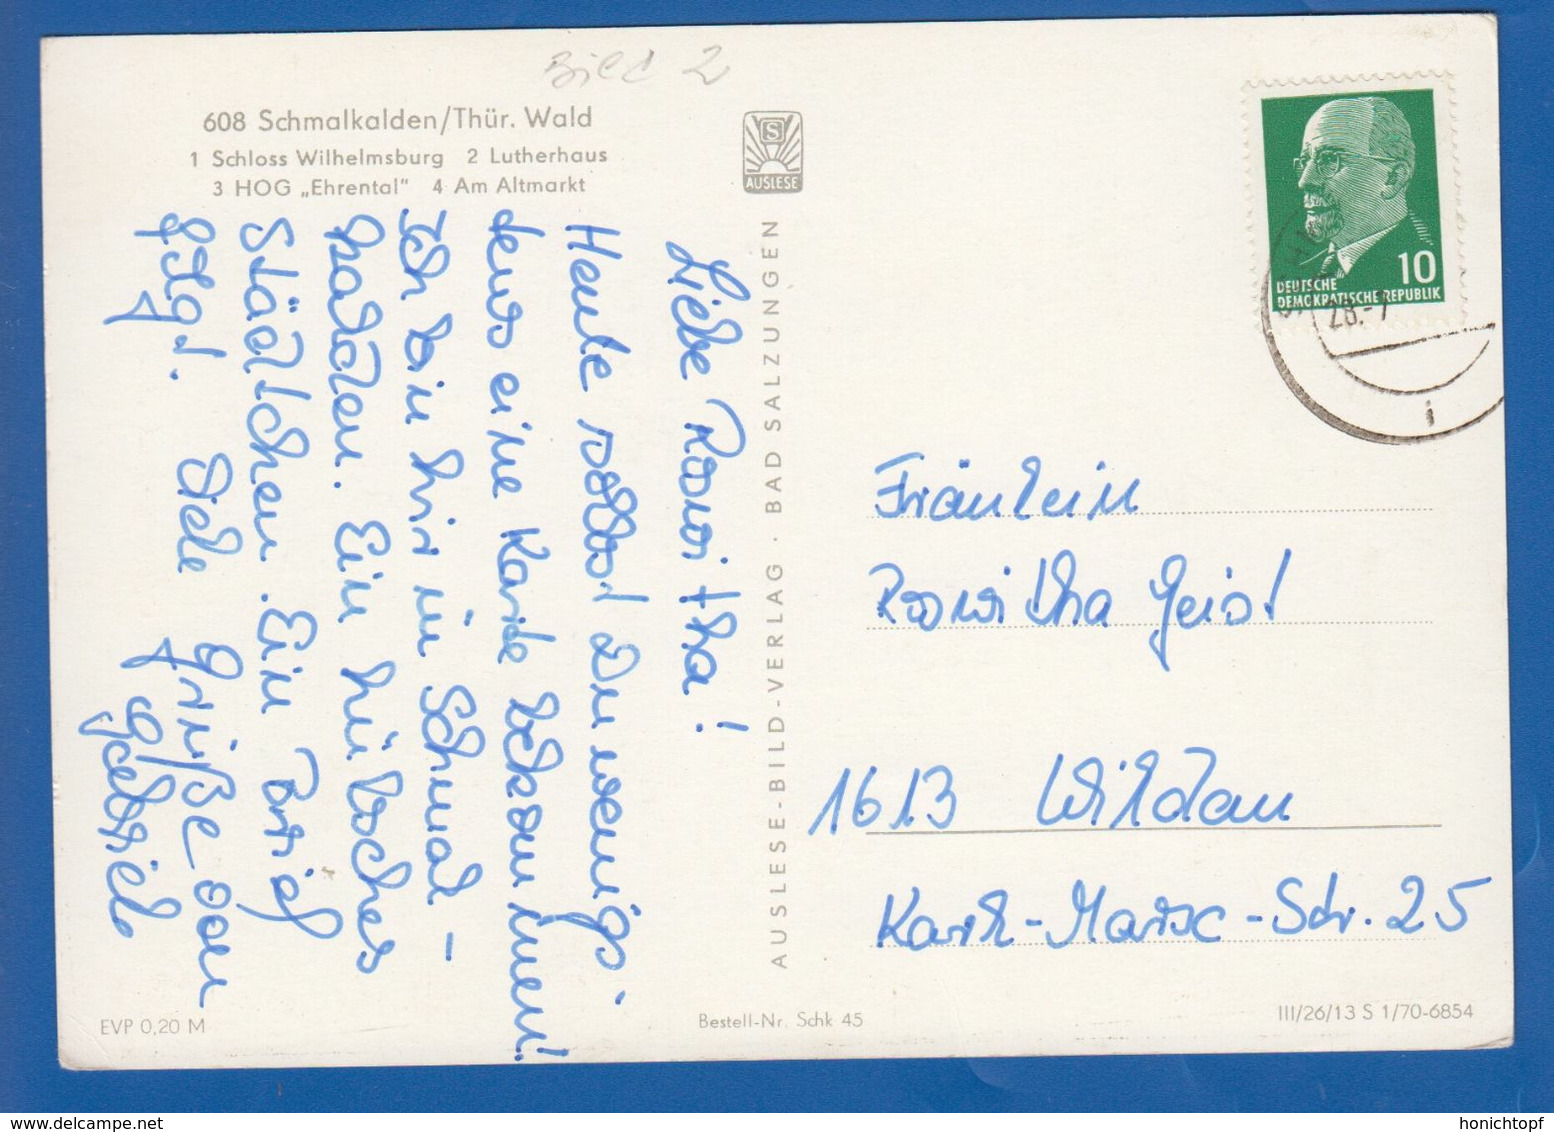 Bild 2
608 Schmalkalden/Thür. Wald
1 Schloss Wilhelmsburg 2 Lutherhaus
3 HOG „Ehrental" 4 Am Altmarkt
S
AUSLESE
Liebe Roswitha!
Heute sollst Du wenig-
stens eine Karte bekommen!
Ich bin hir in Schmal-
kalden. Ein hübsches
Städtchen. Ein Brief
folgt. Viele Grüße von
Gabriele
AUSLESE-BILD-VERLAG · BAD SALZUNGEN
10
DEUTSCHE
DEMOKRATISCHE REPUBLIK
28.-7
i
Fräulein
Roswitha Geist
1613 Wildau
Karl-Marx-Str. 25
EVP 0,20 M
Bestell-Nr. Schk 45
III/26/13 S 1/70-6854
delcampe.net
honichtopf